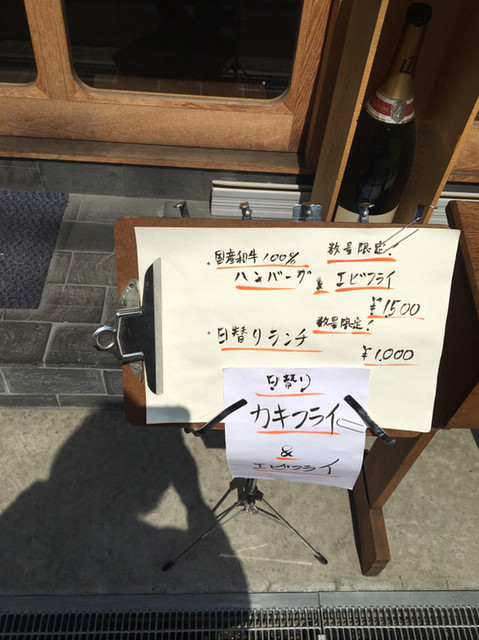 数量限定!
・国産和牛100%
ハンバーグ & エビフライ
¥1,500
数量限定!
・日替りランチ
¥1,000
日替り
カキフライ
&
エビフライ